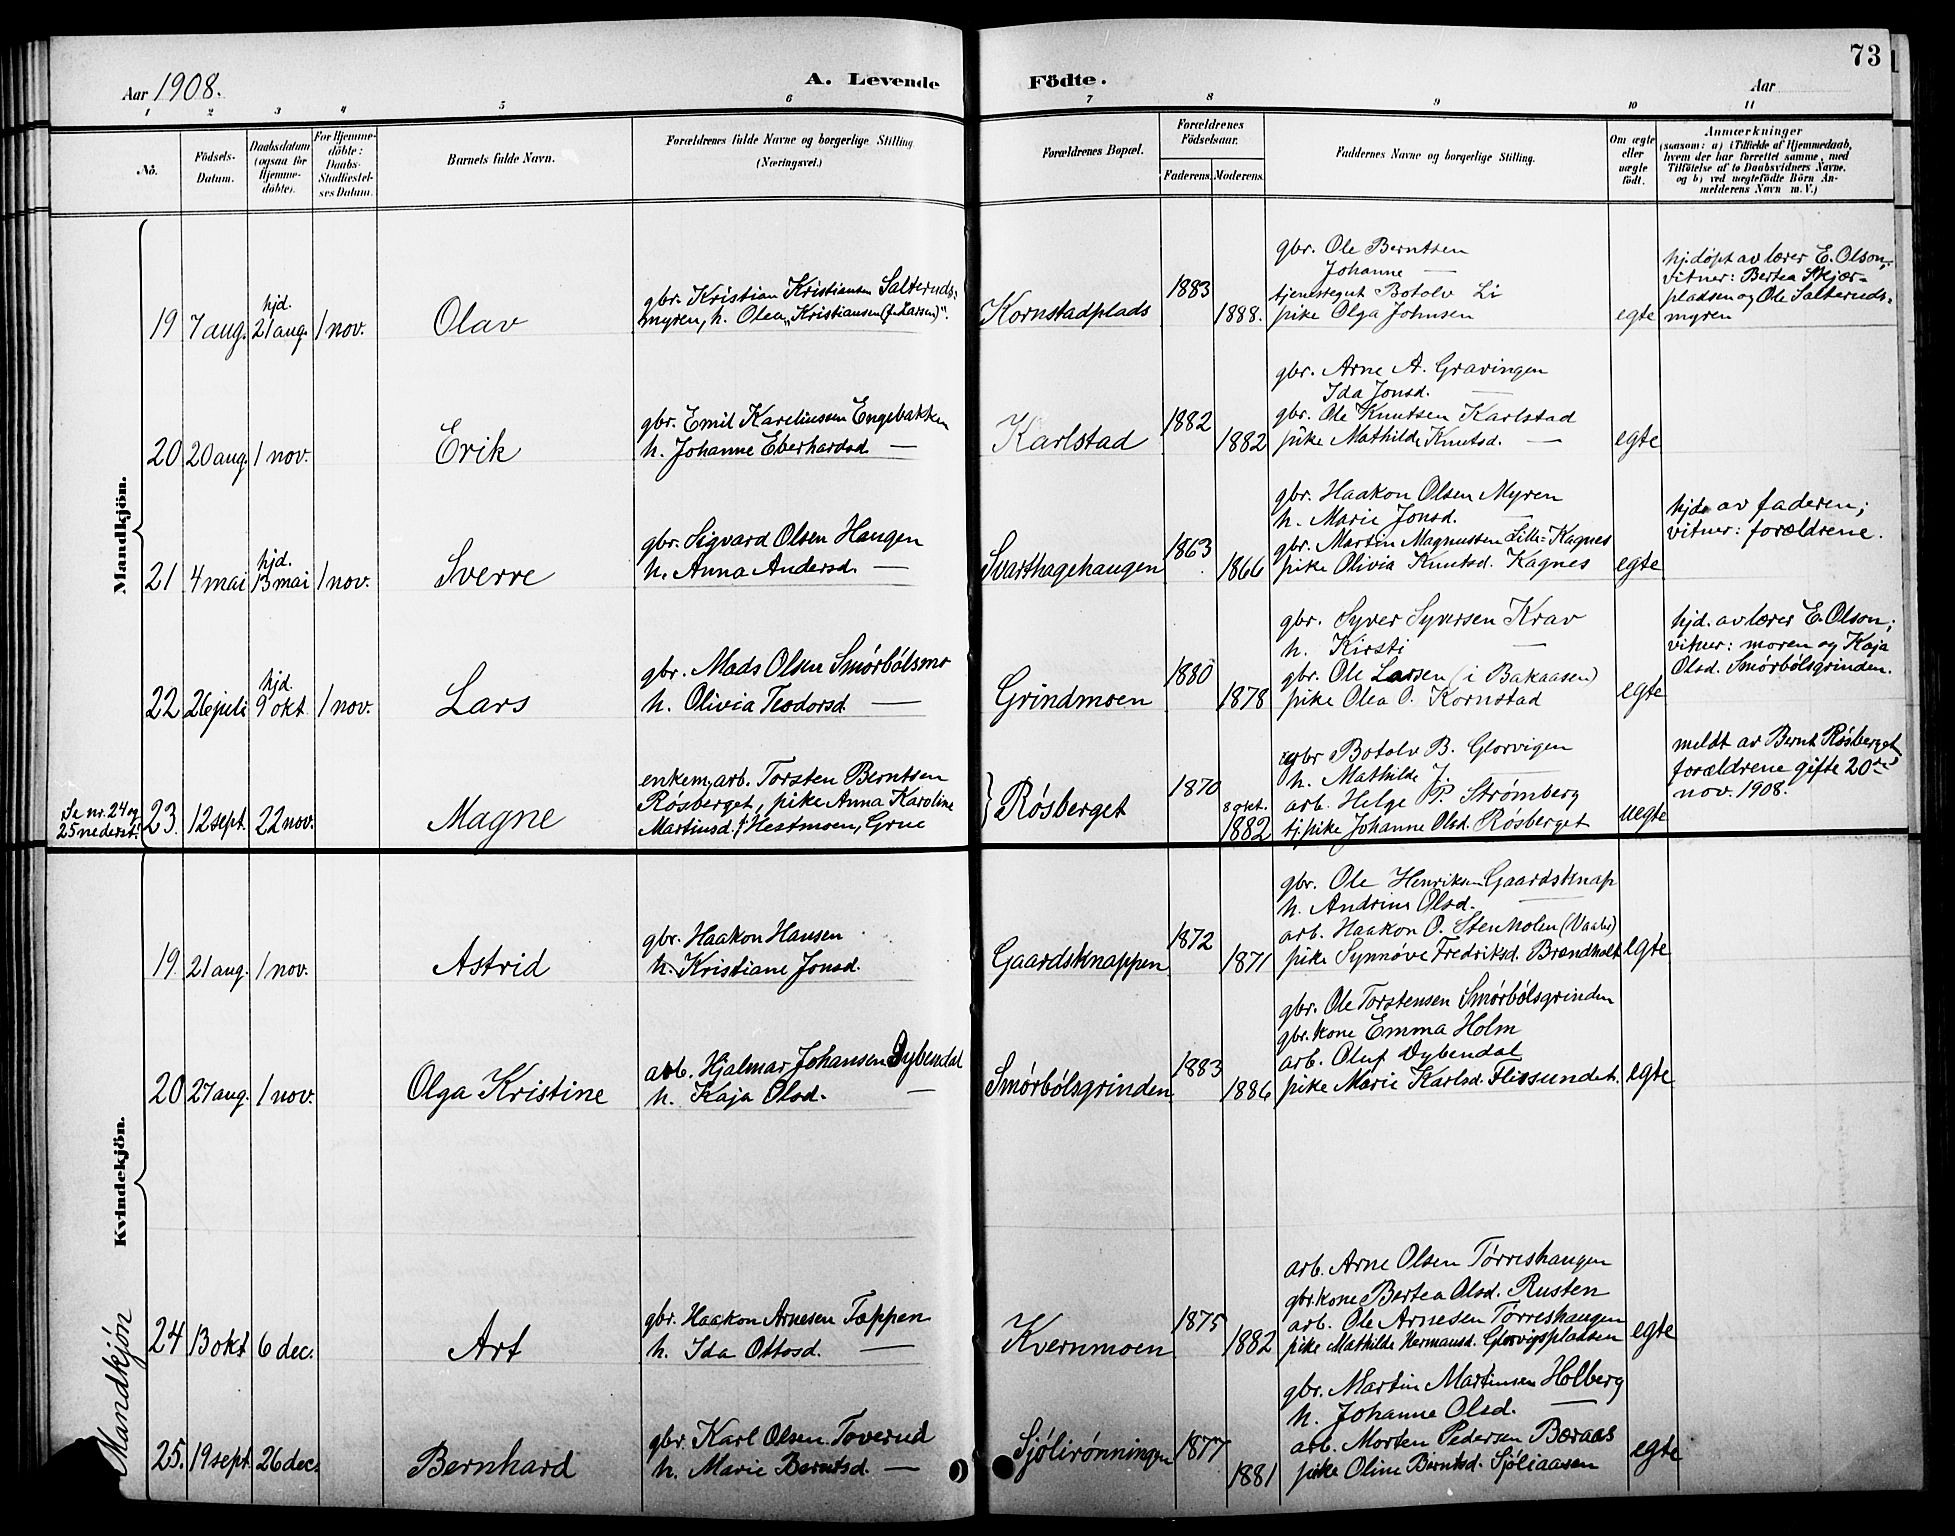 73
Aar 1908.
A. Levende Födte.
Aar
1 2 3 4 5 6 7 8 9 10 11
No.
Födsels-Datum.
Daabsdatum (ogsaa för Hjemme-döbte).
For Hjemme-döbte: Daabs-Stadfæstel-ses Datum.
Barnets fulde Navn.
Forældrenes fulde Navne og borgerlige Stilling (Næringsvei.)
Forældrenes Bopæl.
Forældrenes Födselsaar.
Faderens. Moderens.
Faddernes Navne og borgerlige Stilling.
Om ægte eller uægte födt.
Anmærkninger
(saasom: a) i Tilfælde af Hjemmedaab,
hvem der har forrettet samme, med
Tilföielse af to Daabsvidners Navne.
og b) ved uægtefödte Börn An-
melderens Navn m. V.)
Mandkjön.
19 7 aug. hjd. 21 aug. 1 nov.
Olav
gbr. Kristian Kristiansen Salteruds-
myren, h. Olea Kristiansen (f. Larsen)
Kornstadplads
1883
1888.
gbr. Ole Berntsen
Johanne —
tjenestegut Botolv Li
pike Olga Johnsen
egte
hjdøpt av lærer E. Olson;
vitner: Bertea Skjær-
pladsen og Ole Salteruds-
myren
20 20 aug. 1 nov.
Erik
gbr. Emil Kareliussen Engebakken
h. Johanne Eberhardsd. —
Karlstad
1882
1882
gbr. Arne A. Gravingen
Ida Jonsd. —
gbr. Ole Knutsen Karlstad
pike Mathilde Knutsd. —
egte
21 4 mai hjd. 13 mai 1 nov.
Sverre
gbr. Sigvard Olsen Haugen
h. Anna Andersd. —
Svarthagehaugen
1863
1866
gbr. Haakon Olsen Myren
h. Marie Jonsd. —
gbr. Martin Magnussen Lille-Kagnes
pike Olivia Knutsd. Kagnes
egte
hjd. av faderen;
vitner: forældrene.
22 26 juli hjd. 9 okt. 1 nov.
Lars
gbr. Mads Olsen Smörbölsmo
h. Olivia Teodorsd. —
Grindmoen
1880
1878
gbr. Syver Syversen Krav
h. Kirsti —
gbr. Ole Larsen (i Bakaasen)
pike Olea O. Kornstad
egte
hjd. av lærer E. Olson;
vitner: moren og Kaja
Olsd. Smörbölsgrinden.
Se nr. 24 og
25 nederst!
23. 12 sept. 22 nov.
Magne
enkem. arb. Torsten Berntsen
Røsberget, pike Anna Karoline
Martinsd. Hestmoen, Grue
Røsberget
1870
8 okt. 1882
gbr Botolv B. Glorvigen
h. Mathilde J. —
arb. Helge P. Strømberg
tj.pike Johanne Olsd. Røsberget
uegte
meldt av Bernt Røsberget
forældrene gifte 20de
nov. 1908.
Kvindekjön.
19. 21 aug. 1 nov.
Astrid
gbr. Haakon Hansen
h. Kristiane Jonsd.
Gaardsknappen
1872
1871
gbr. Ole Henriksen Gaardsknap
h. Andrine Olsd. —
arb. Haakon O. Stenholen (Vaaler)
pike Synnøve Fredriksd. Brændholt
egte
20 27 aug. 1 nov.
Olga Kristine
arb. Hjalmar Johansen Dybendal
h. Kaja Olsd. —
Smörbölsgrinden
1883
1886
gbr. Ole Torstensen Smörbölsgrinden
gbr.kone Emma Holm
arb. Oluf Dybendal
pike Marie Karlsd. Flissundet.
egte
Mandkjön
24 13 okt 6 dec.
Art
gbr. Haakon Arnesen Tæppen
h. Ida Ottosd. —
Kvernmoen
1875
1882
arb. Arne Olsen Tørreshaugen
gbr.kone Bertea Olsd. Rusten
arb. Ole Arnesen Tørreshaugen
pike Mathilde Hermansd. Glorvigspladsen
egte
25. 19 sept. 26 dec.
Bernhard
gbr. Karl Olsen Toverud
h. Marie Berntsd. —
Sjölirönningen
1877
1881
gbr. Martin Martinsen Holberg
h. Johanne Olsd. —
arb. Morten Pedersen Bæraas
pike Oline Berntsd. Sjöliaasen
egte